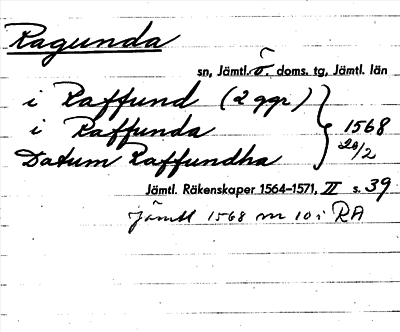 Ragunda
sn, Jämtl. ö. doms. tg, Jämtl. län
i Raffund (2 ggr)
i Raffunda
Datum Raffundha
1568
20/2
Jämtl. Räkenskaper 1564–1571, II s. 39
Jämtl 1568 m 10 i RA